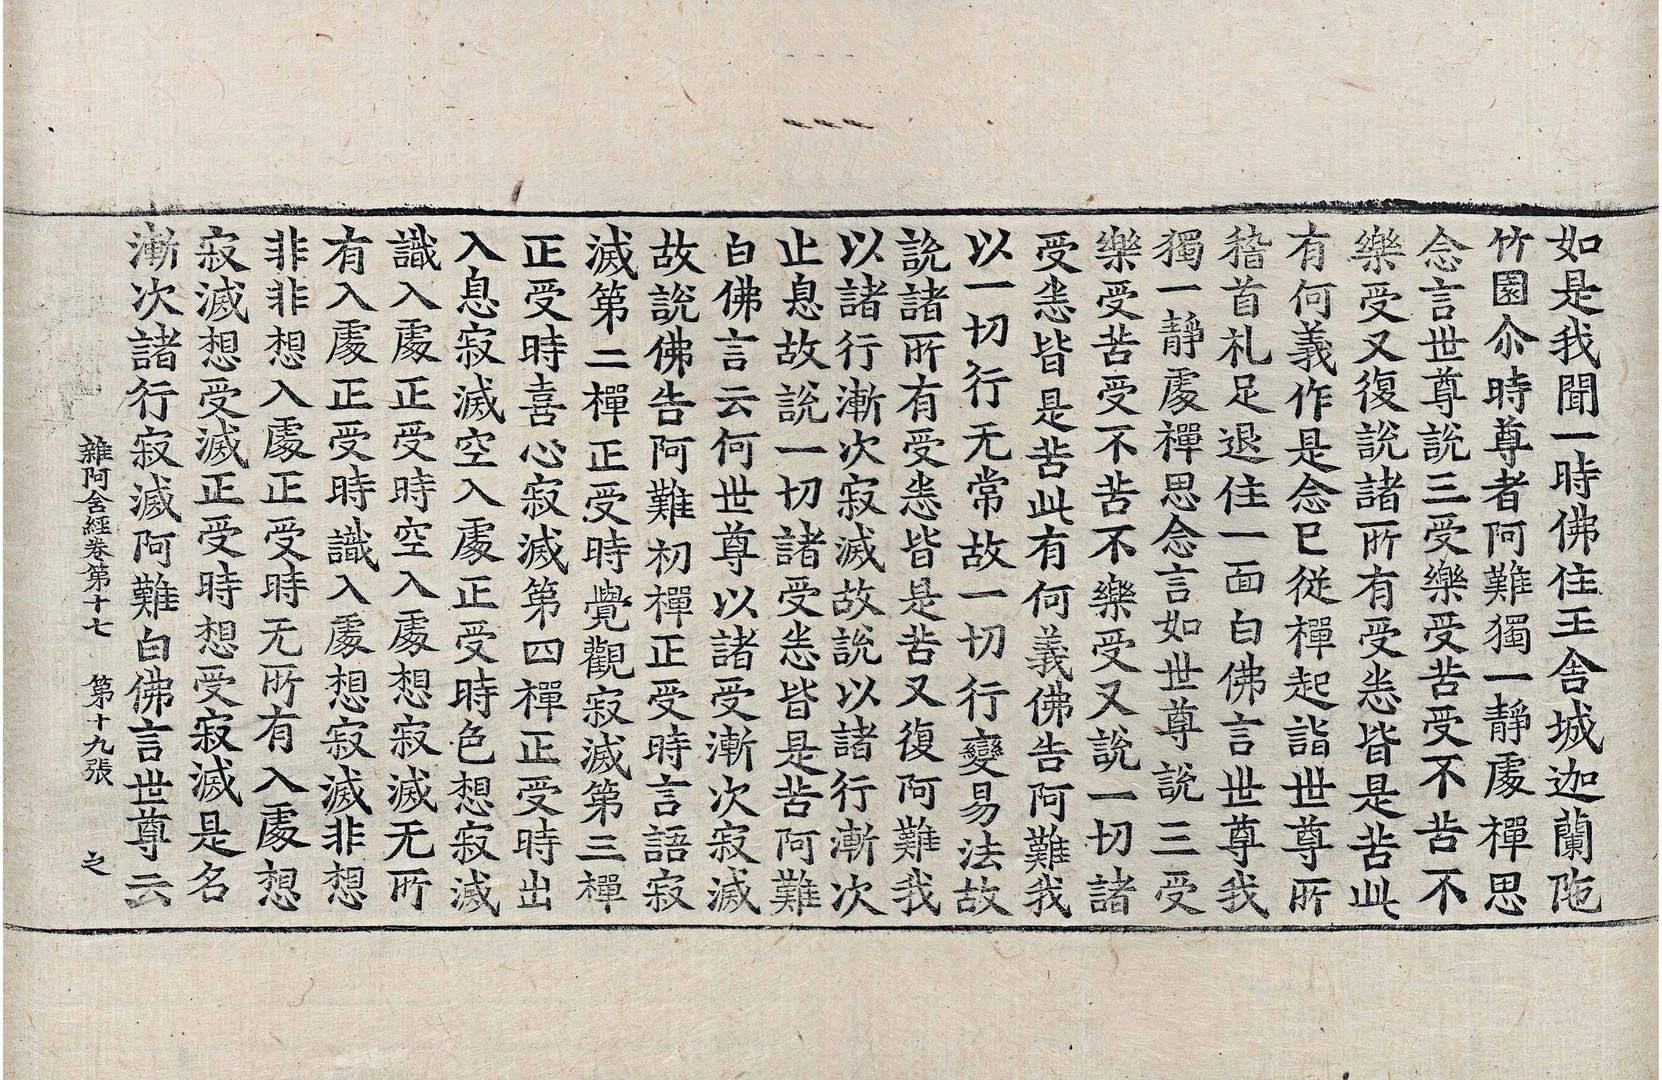 如是我聞一時佛住王舍城迦蘭陁
竹園尒時尊者阿難獨一靜處禪思
念言世尊說三受樂受苦受不苦不
樂受又復說諸所有受悉皆是苦此
有何義作是念已從禪起詣世尊所
稽首礼足退住一面白佛言世尊我
獨一靜處禪思念言如世尊說三受
樂受苦受不苦不樂受又說一切諸
受悉皆是苦此有何義佛告阿難我
以一切行无常故一切行變易法故
說諸所有受悉皆是苦又復阿難我
以諸行漸次寂滅故說以諸行漸次
止息故說一切諸受悉皆是苦阿難
白佛言云何世尊以諸受漸次寂滅
故說佛告阿難初禪正受時言語寂
滅第二禪正受時覺觀寂滅第三禪
正受時喜心寂滅第四禪正受時出
入息寂滅空入處正受時色想寂滅
識入處正受時空入處想寂滅无所
有入處正受時識入處想寂滅非想
非非想入處正受時无所有入處想
寂滅想受滅正受時想受寂滅是名
漸次諸行寂滅阿難白佛言世尊云
雜阿含經卷第十七 第十九張 之